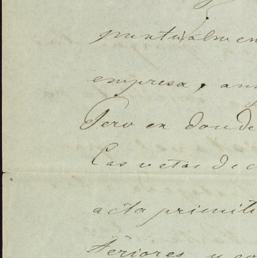 puntualmen
empresa, an
Pero en donde
Las vetas de c
acta primiti
teriores, y co